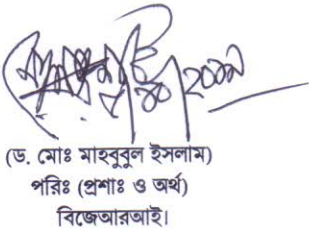 (ড. মোঃ মাহবুবুল ইসলাম)
পরিঃ (প্রশাঃ ও অর্থ)
বিজেআরআই।